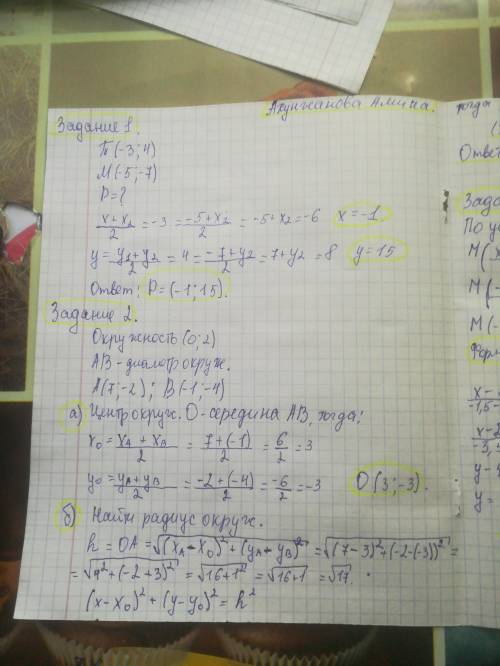 Ахунжанова Амина.
Задание 1.
П(-3; 4)
М(-5; -7)
P=?
x+x₂/2 = -3 = -5+x₂/2 = -5+x₂ = -6 x=-1
y = y₁+y₂/2 = 4 = -7+y₂/2 = 7+y₂ = 8 y=15
Ответ: P=(-1; 15).
Задание 2.
Окружность (0; 2)
AB-диаметр окруж.
A(7; -2); B(-1; -4)
а) Центр окруж. O-середина AB, тогда:
x₀ = xA + xB/2 = 7+(-1)/2 = 6/2 = 3
y₀ = yA+yB/2 = -2+(-4)/2 = -6/2 = -3 O(3; -3).
б) Найти радиус окруж.
R = OA = √(xA - x₀)² + (yA - yB)² = √(7-3)² + (-2-(-3))² =
= √4² + (-2+3)² = √16+1² = √16+1 = √17.
(x-x₀)² + (y-y₀)² = R²
тогда
Ответ
Зада
По у
М(
М(-
М(-
Форм
x-
-1,5-
x-2
-3,
y-
y=